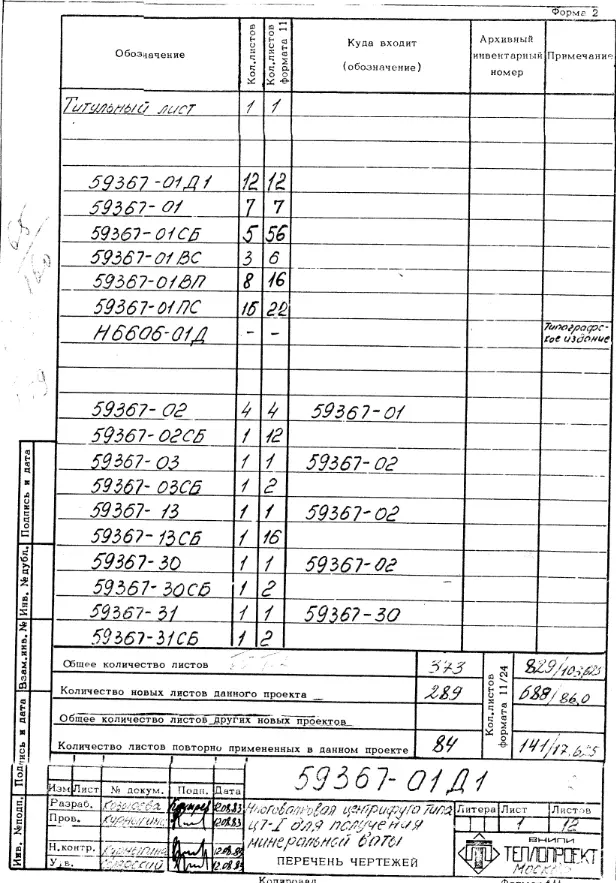 Форма 2
Обозначение Кол.листов Кол.листов формата 11 Куда входит (обозначение) Архивный инвентарный номер Примечание
Титульный лист 1 1
59367-01Д1 12 12
59367-01 7 7
59367-01СБ 5 56
59367-01ВС 3 6
59367-01ВП 8 16
59367-01ПС 15 22
Н6606-01Д - - Типографское издание
59367-02 4 4 59367-01
59367-02СБ 1 12
59367-03 1 1 59367-02
59367-03СБ 1 2
59367-13 1 1 59367-02
59367-13СБ 1 16
59367-30 1 1 59367-02
59367-30СБ 1 2
59367-31 1 1 59367-30
59367-31СБ 1 2
Общее количество листов 373 Кол.листов формата 11/24 829/103,625
Количество новых листов данного проекта 289 688/86,0
Общее количество листов других новых проектов
Количество листов повторно примененных в данном проекте 84 141/17,625
Подпись и дата
Инв. №дубл.
Взам.инв. №
Подпись и дата
Инв. №подл.
59367-01Д1
Изм Лист № докум. Подп. Дата
Разраб. 12.08.83
Пров. 12.08.83
Н.контр.
Утв.
Многовалковая центрифуга типа
ЦТ-I для получения
минеральной ваты
ПЕРЕЧЕНЬ ЧЕРТЕЖЕЙ
Литера Лист Листов
1 12
ВНИПИ
ТЕПЛОПРОЕКТ
МОСКВА
Копировал